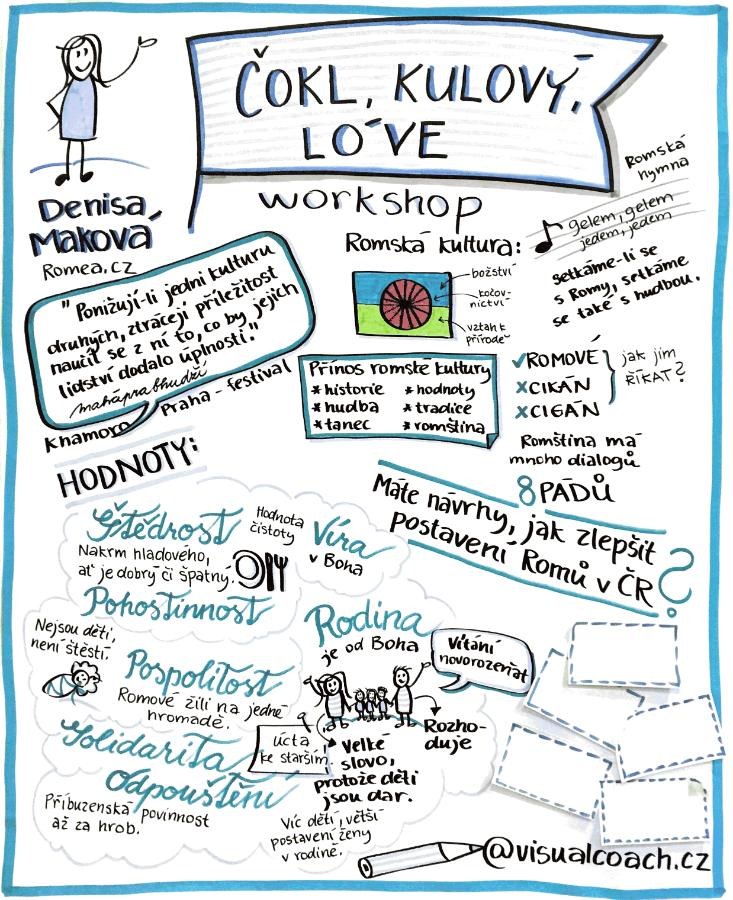 ČOKL, KULOVÝ,
LÓVE
workshop
Denisa
Maková
Romea.cz
"Ponižují-li jedni kulturu
druhých, ztrácejí příležitost
naučit se z ní to, co by jejich
lidství dodalo úplnosti."
maháprabhudží
Khamoro Praha - festival
Romská
hymna
gelem, gelem
jedem, jedem
setkáme-li se
s Romy, setkáme
se také s hudbou.
Romská kultura:
božství
kočov-
nictví
vztah k
přírodě
Přínos romské kultury
* historie
* hudba
* tanec
* hodnoty
* tradice
* romština
✓ROMOVÉ
xCIKÁN
xCIGÁN
jak jim
ŘÍKAT?
Romština má
mnoho dialogů
8 PÁDŮ
Máte návrhy, jak zlepšit
postavení Romů v ČR?
HODNOTY:
Štědrost
Nakrm hladového,
ať je dobrý či špatný.
Hodnota
čistoty
Víra
v Boha
Pohostinnost
Nejsou děti,
není štěstí.
Pospolitost
Romové žili na jedné
hromadě.
Rodina
je od Boha
Vítání
novorozeňat
úcta
ke starším
Velké
slovo,
protože děti
jsou dar.
Rozho-
duje
Víc dětí, větší
postavení ženy
v rodině.
Solidarita
Odpouštění
Příbuzenská povinnost
až za hrob.
@visualcoach.cz